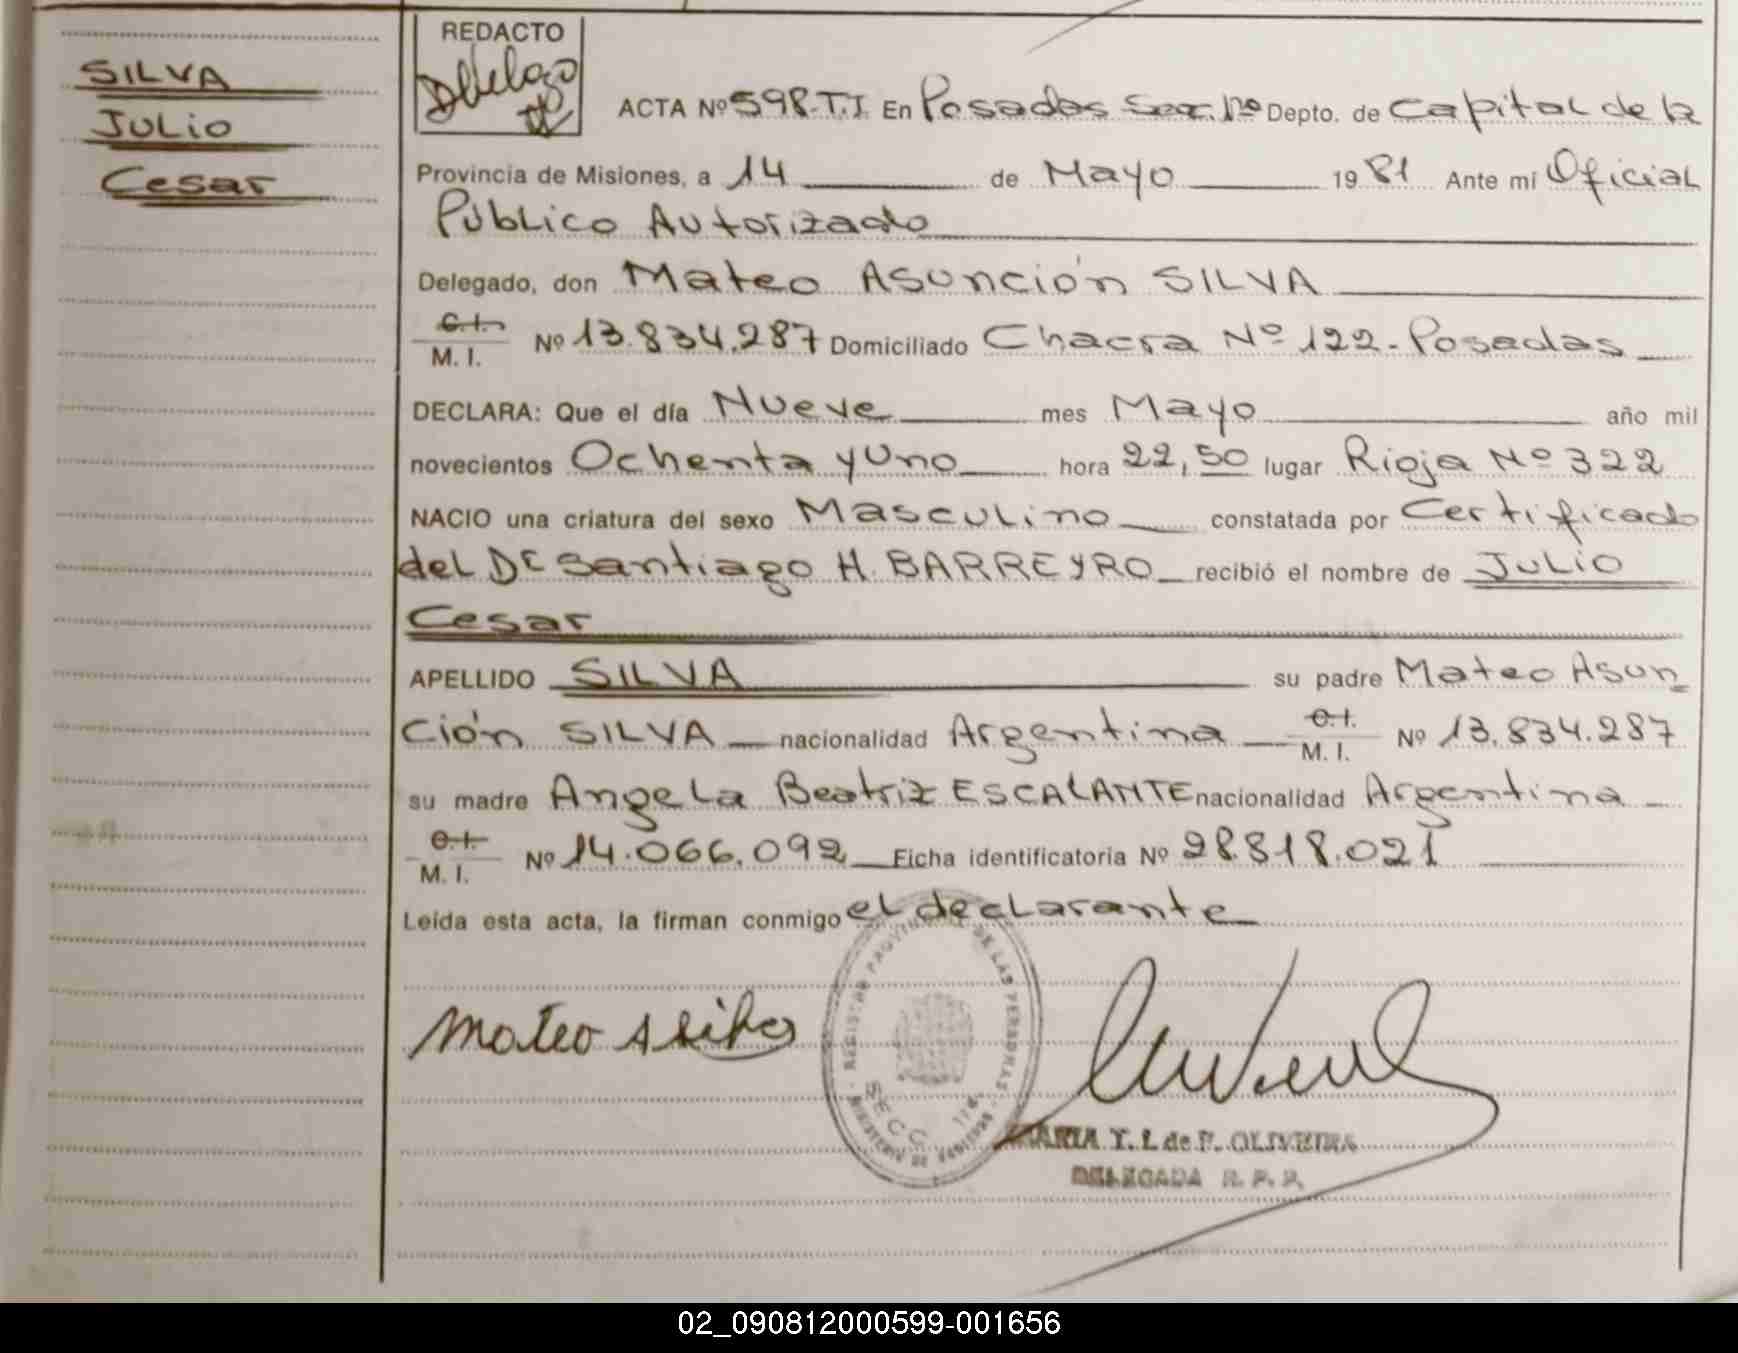 SILVA
JULIO
Cesar
REDACTO
ACTA Nº 598-T.I En Posadas Sec. 1º Depto. de Capital de la
Provincia de Misiones, a 14 de Mayo 1981 Ante mi Oficial
Público Autorizado
Delegado, don Mateo Asunción SILVA
C.I.
M. I. Nº 13.834.287 Domiciliado Chacra Nº 122-Posadas
DECLARA: Que el día Nueve mes Mayo año mil
novecientos Ochenta y Uno hora 22,50 lugar Rioja Nº 322
NACIO una criatura del sexo Masculino constatada por Certificado
del Dr Santiago H. BARREYRO recibió el nombre de JULIO
Cesar
APELLIDO SILVA su padre Mateo Asun
Ción SILVA nacionalidad Argentina C.I. M. I. Nº 13.834.287
su madre Angela Beatriz ESCALANTE nacionalidad Argentina
C.I.
M. I. Nº 14.066.092 Ficha identificatoria Nº 28.818.021
Leída esta acta, la firman conmigo el declarante
Mateo A Silva
REGISTRO PROVINCIAL DE LAS PERSONAS
SECC. 1ra.
MINISTERIO DE GOBIERNO
MARIA Y. L. de F. OLIVEIRA
DELEGADA R. P. P.
02_090812000599-001656